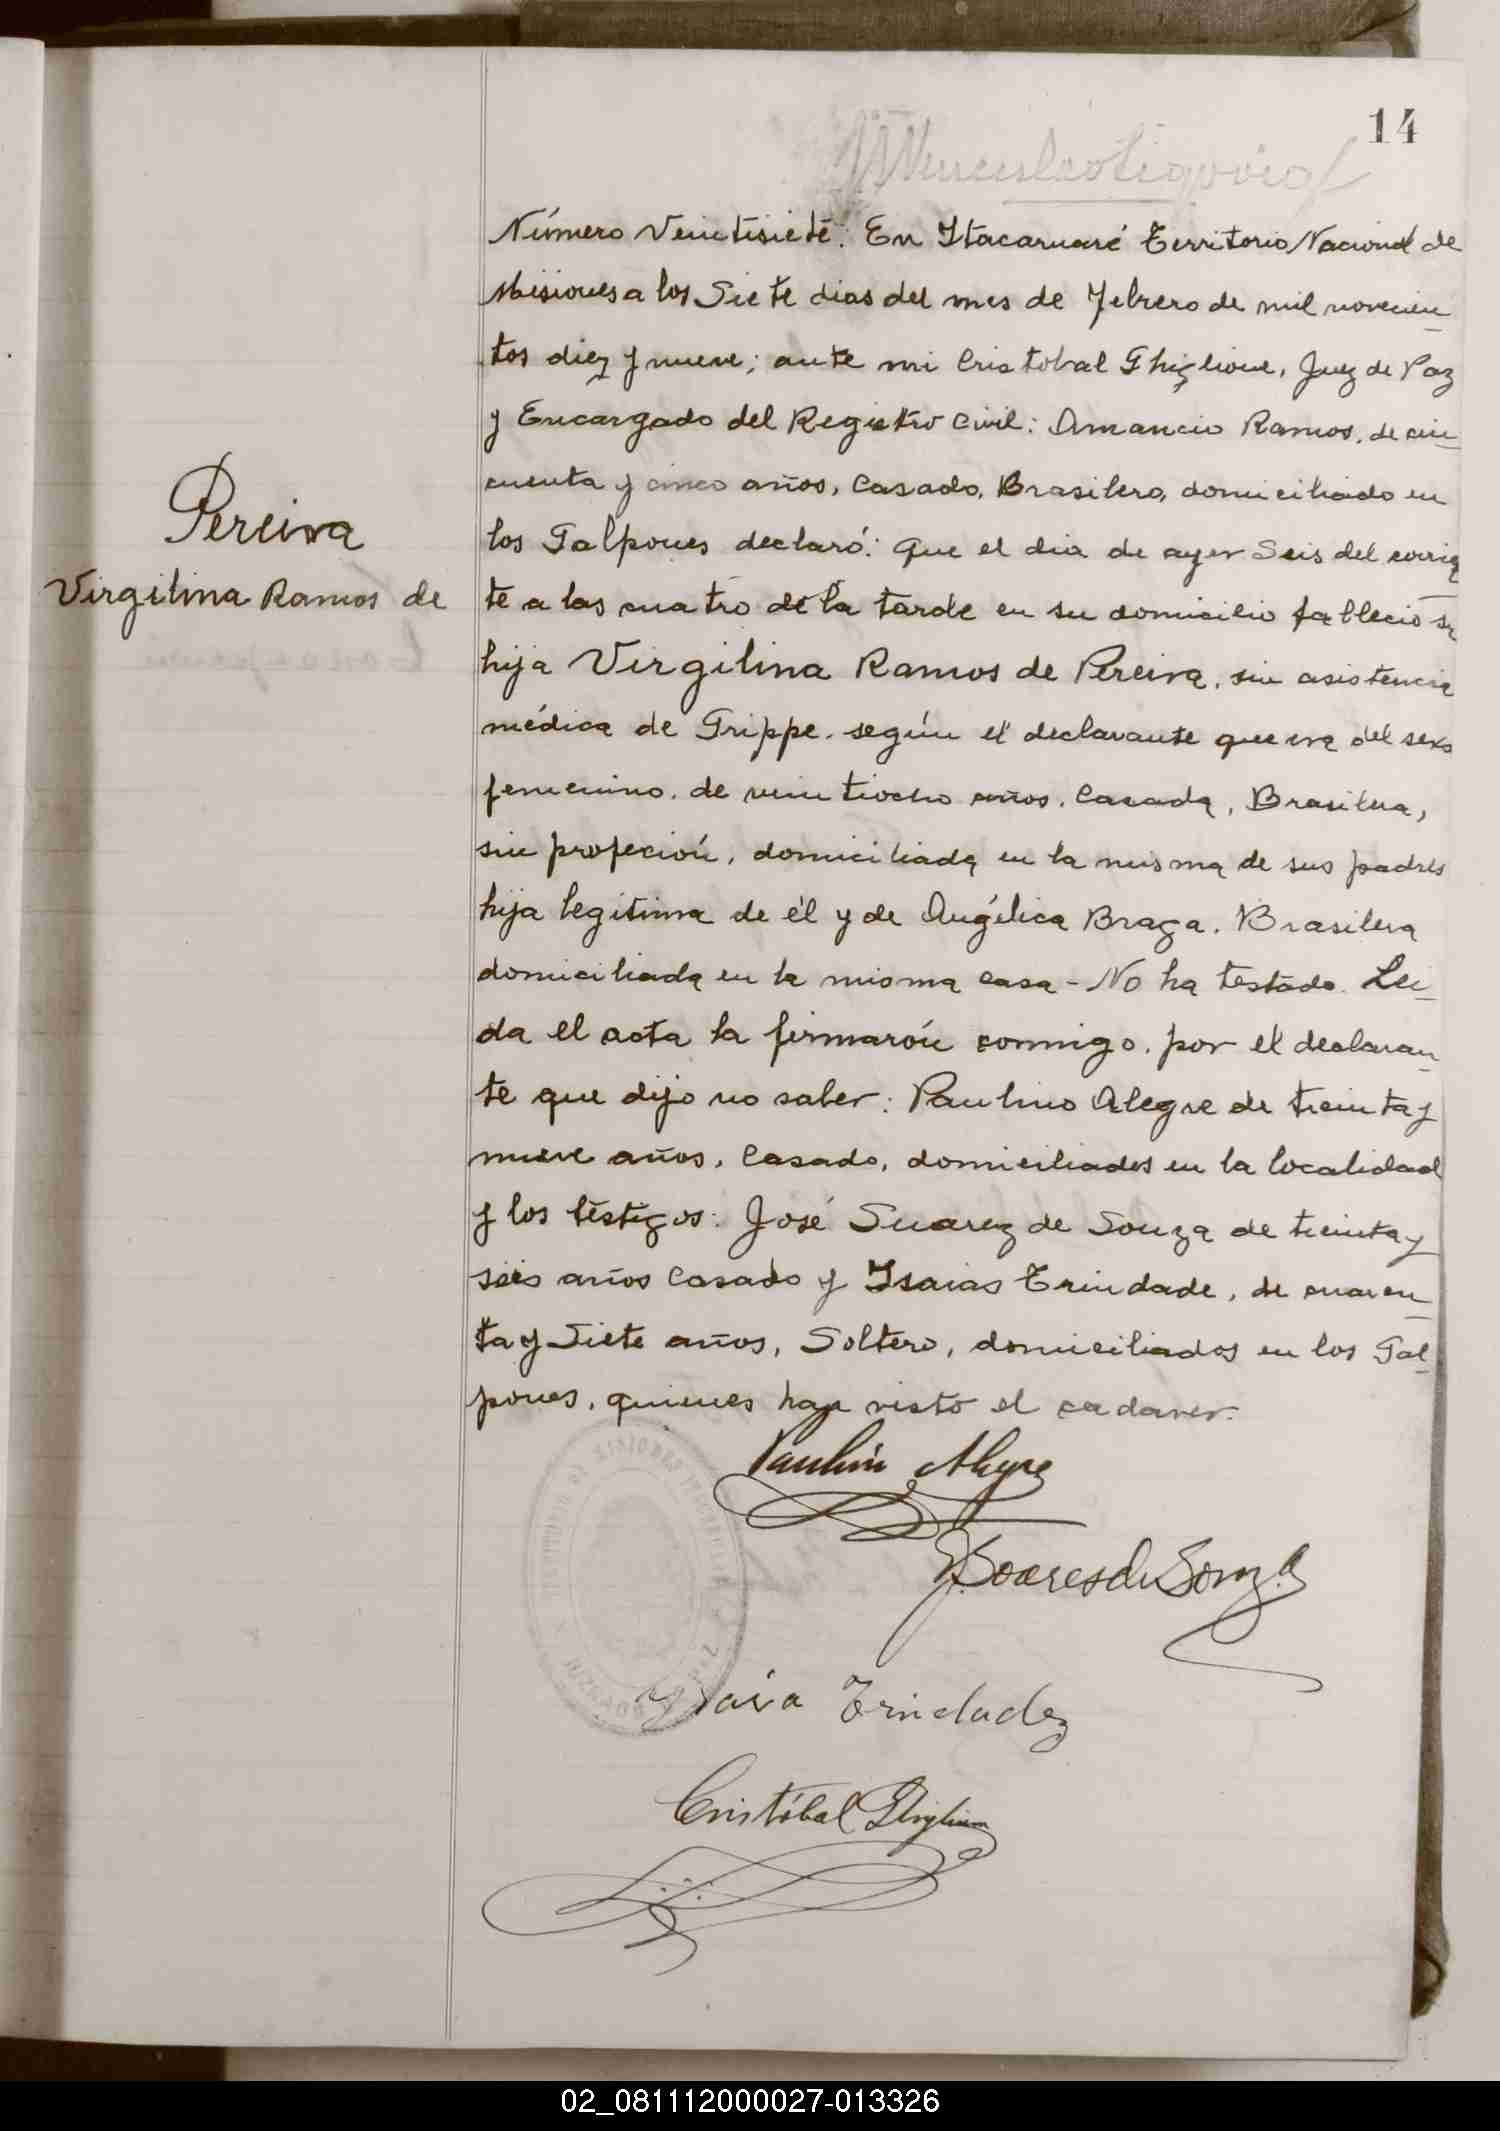 14
Número Veintisiete. En Itacaruaré Territorio Nacional de
Misiones a los Siete dias del mes de Febrero de mil novecien_
tos diez y nueve; ante mi Cristobal Ghiglione, Juez de Paz
y Encargado del Registro Civil: Amancio Ramos, de cin_
cuenta y cinco años, Casado, Brasilero, domiciliado en
los Galpones declaró: Que el dia de ayer Seis del corrien
te a las cuatro de la tarde en su domicilio falleció su
Pereira
Virgilina Ramos de
hija Virgilina Ramos de Pereira, sin asistencia
médica de Grippe. según el declarante que era del sexo
femenino, de veintiocho años, Casada, Brasilera,
sin profeción, domiciliada en la misma de sus padres
hija legitima de él y de Angélica Braga. Brasilera
domiciliada en la misma casa - No ha testado. Lei_
da el acta la firmarón conmigo, por el declaran_
te que dijo no saber: Paulino Alegre de treinta y
nueve años, Casado, domiciliados en la localidad
y los testigos: José Suarez de Souza de treinta y
seis años Casado y Isaias Trindade, de cuaren_
ta y Siete años, Soltero, domiciliados en los Gal_
pones, quienes han visto el cadaver.
Paulino Alegre
J. Soares de Souza
Trindade
Cristóbal Ghiglione
02_081112000027-013326